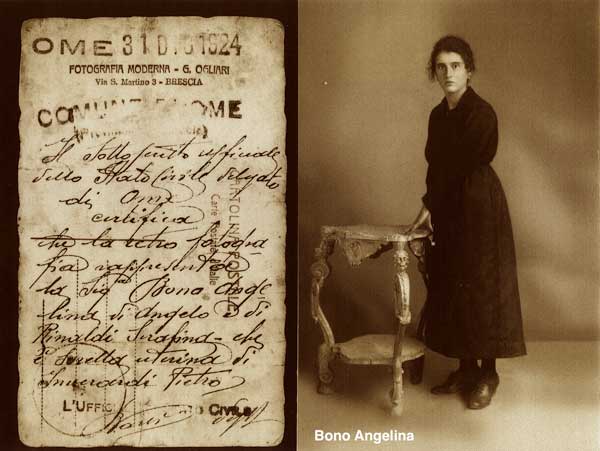 OME 31 DIC 1924
FOTOGRAFIA MODERNA - G. OGLIARI
Via S. Martino 3 - BRESCIA
COMUNE OME
Il sottoscritto ufficiale
dello Stato Civile delegato
di Ome
certifica
che la retro fotogra
fia rappresenta
la Sig.ra Bono Ange
lina di Angelo e di
Rinaldi Serafina - che
è sorella uterina di
Inverardi Pietro
L'UFFIC Civile
CARTOLINA POSTALE
Carte Postale
Bono Angelina